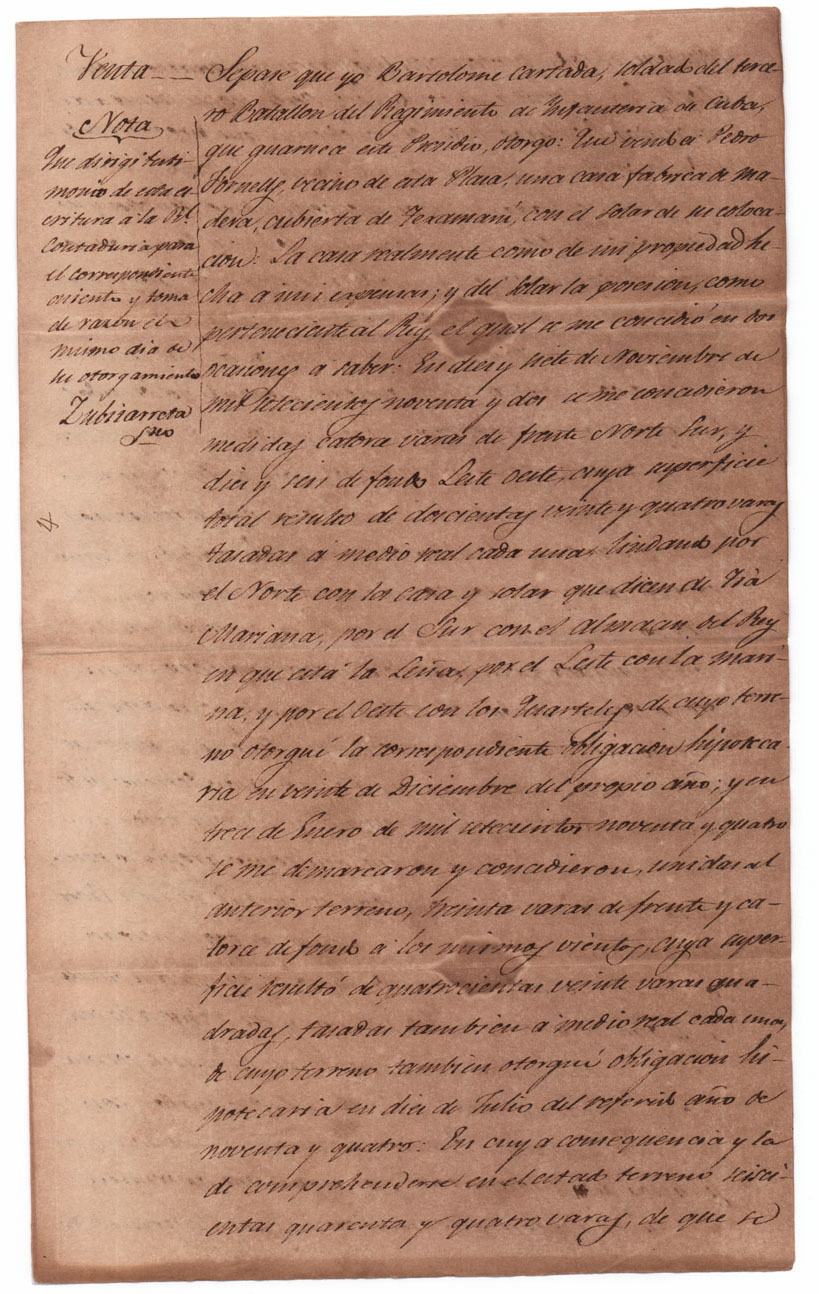 Venta
Nota
Que dirigí testi-
monio de esta es-
critura á la Rl.
Contaduria para
el correspondiente
asiento y toma
de razon el
mismo dia de
su otorgamiento
Zubizarreta
Sno
Sepase que yo Bartolome Cartada, soldado del terce-
ro Batallon del Regimiento de Infanteria de Cuba,
que guarnece este Presidio, otorgo: Que vendo á Pedro
Fornells, vecino de esta Plaza, una casa fabrica de ma-
dera, cubierta de Texamaní, con el solar de su coloca-
cion: La casa realmente como de mi propiedad he-
cha á mis expensas; y del solar la posesion, como
perteneciente al Rey, el qual se me concidió en dos
ocasiones á saber: En diez y siete de Noviembre de
mil setecientos noventa y dos se me concidieron
medidas catorce varas de frente Norte Sur, y
diez y seis de fondo Leste Oeste, cuya superficie
total resultó de doscientas veinte y quatro varas
tasadas á medio real cada una, lindando por
el Norte con la casa y solar que dicen de Tia
Mariana, por el Sur con el Almacen del Rey
en que está la Leña, por el Leste con la mari-
na, y por el Oeste con los Quarteles, de cuyo terre-
no otorgué la correspondiente obligacion hipoteca-
ria en veinte de Diciembre del propio año; y en
trece de Enero de mil setecientos noventa y quatro
se me demarcaron y concidieron, unidas al
anterior terreno, treinta varas de frente y ca-
torce de fondo á los mismos vientos, cuya super-
ficie resultó de quatrocientas veinte varas qua-
dradas, tasadas tambien á medio real cada una,
de cuyo terreno tambien otorgué obligacion hi-
potecaria en diez de Julio del referido año de
noventa y quatro: En cuya consequencia y la
de comprehenderse en el citado terreno seisci-
entas quarenta y quatro varas, de que se